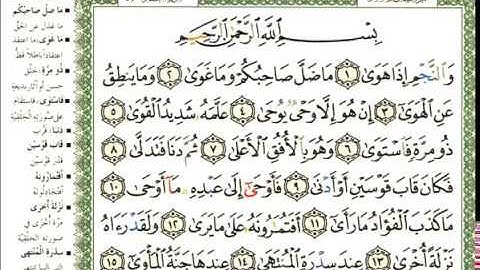 بِسْمِ اللَّهِ الرَّحْمَٰنِ الرَّحِيمِ
وَالنَّجْمِ إِذَا هَوَىٰ ١ مَا ضَلَّ صَاحِبُكُمْ وَمَا غَوَىٰ ٢ وَمَا يَنطِقُ
عَنِ الْهَوَىٰ ٣ إِنْ هُوَ إِلَّا وَحْيٌ يُوحَىٰ ٤ عَلَّمَهُ شَدِيدُ الْقُوَىٰ ٥
ذُو مِرَّةٍ فَاسْتَوَىٰ ٦ وَهُوَ بِالْأُفُقِ الْأَعْلَىٰ ٧ ثُمَّ دَنَا فَتَدَلَّىٰ ٨
فَكَانَ قَابَ قَوْسَيْنِ أَوْ أَدْنَىٰ ٩ فَأَوْحَىٰ إِلَىٰ عَبْدِهِ مَا أَوْحَىٰ ١٠
مَا كَذَبَ الْفُؤَادُ مَا رَأَىٰ ١١ أَفَتُمَارُونَهُ عَلَىٰ مَا يَرَىٰ ١٢ وَلَقَدْ رَءَاهُ
نَزْلَةً أُخْرَىٰ ١٣ عِندَ سِدْرَةِ الْمُنتَهَىٰ ١٤ عِندَهَا جَنَّةُ الْمَأْوَىٰ ١٥
مَا ضَلَّ صَاحِبُكُم
مَا غَوَىٰ
ذُو مِرَّةٍ
فَاسْتَوَىٰ
قَابَ قَوْسَيْنِ
أَفَتُمَارُونَهُ
نَزْلَةً أُخْرَىٰ
سِدْرَةِ الْمُنتَهَىٰ